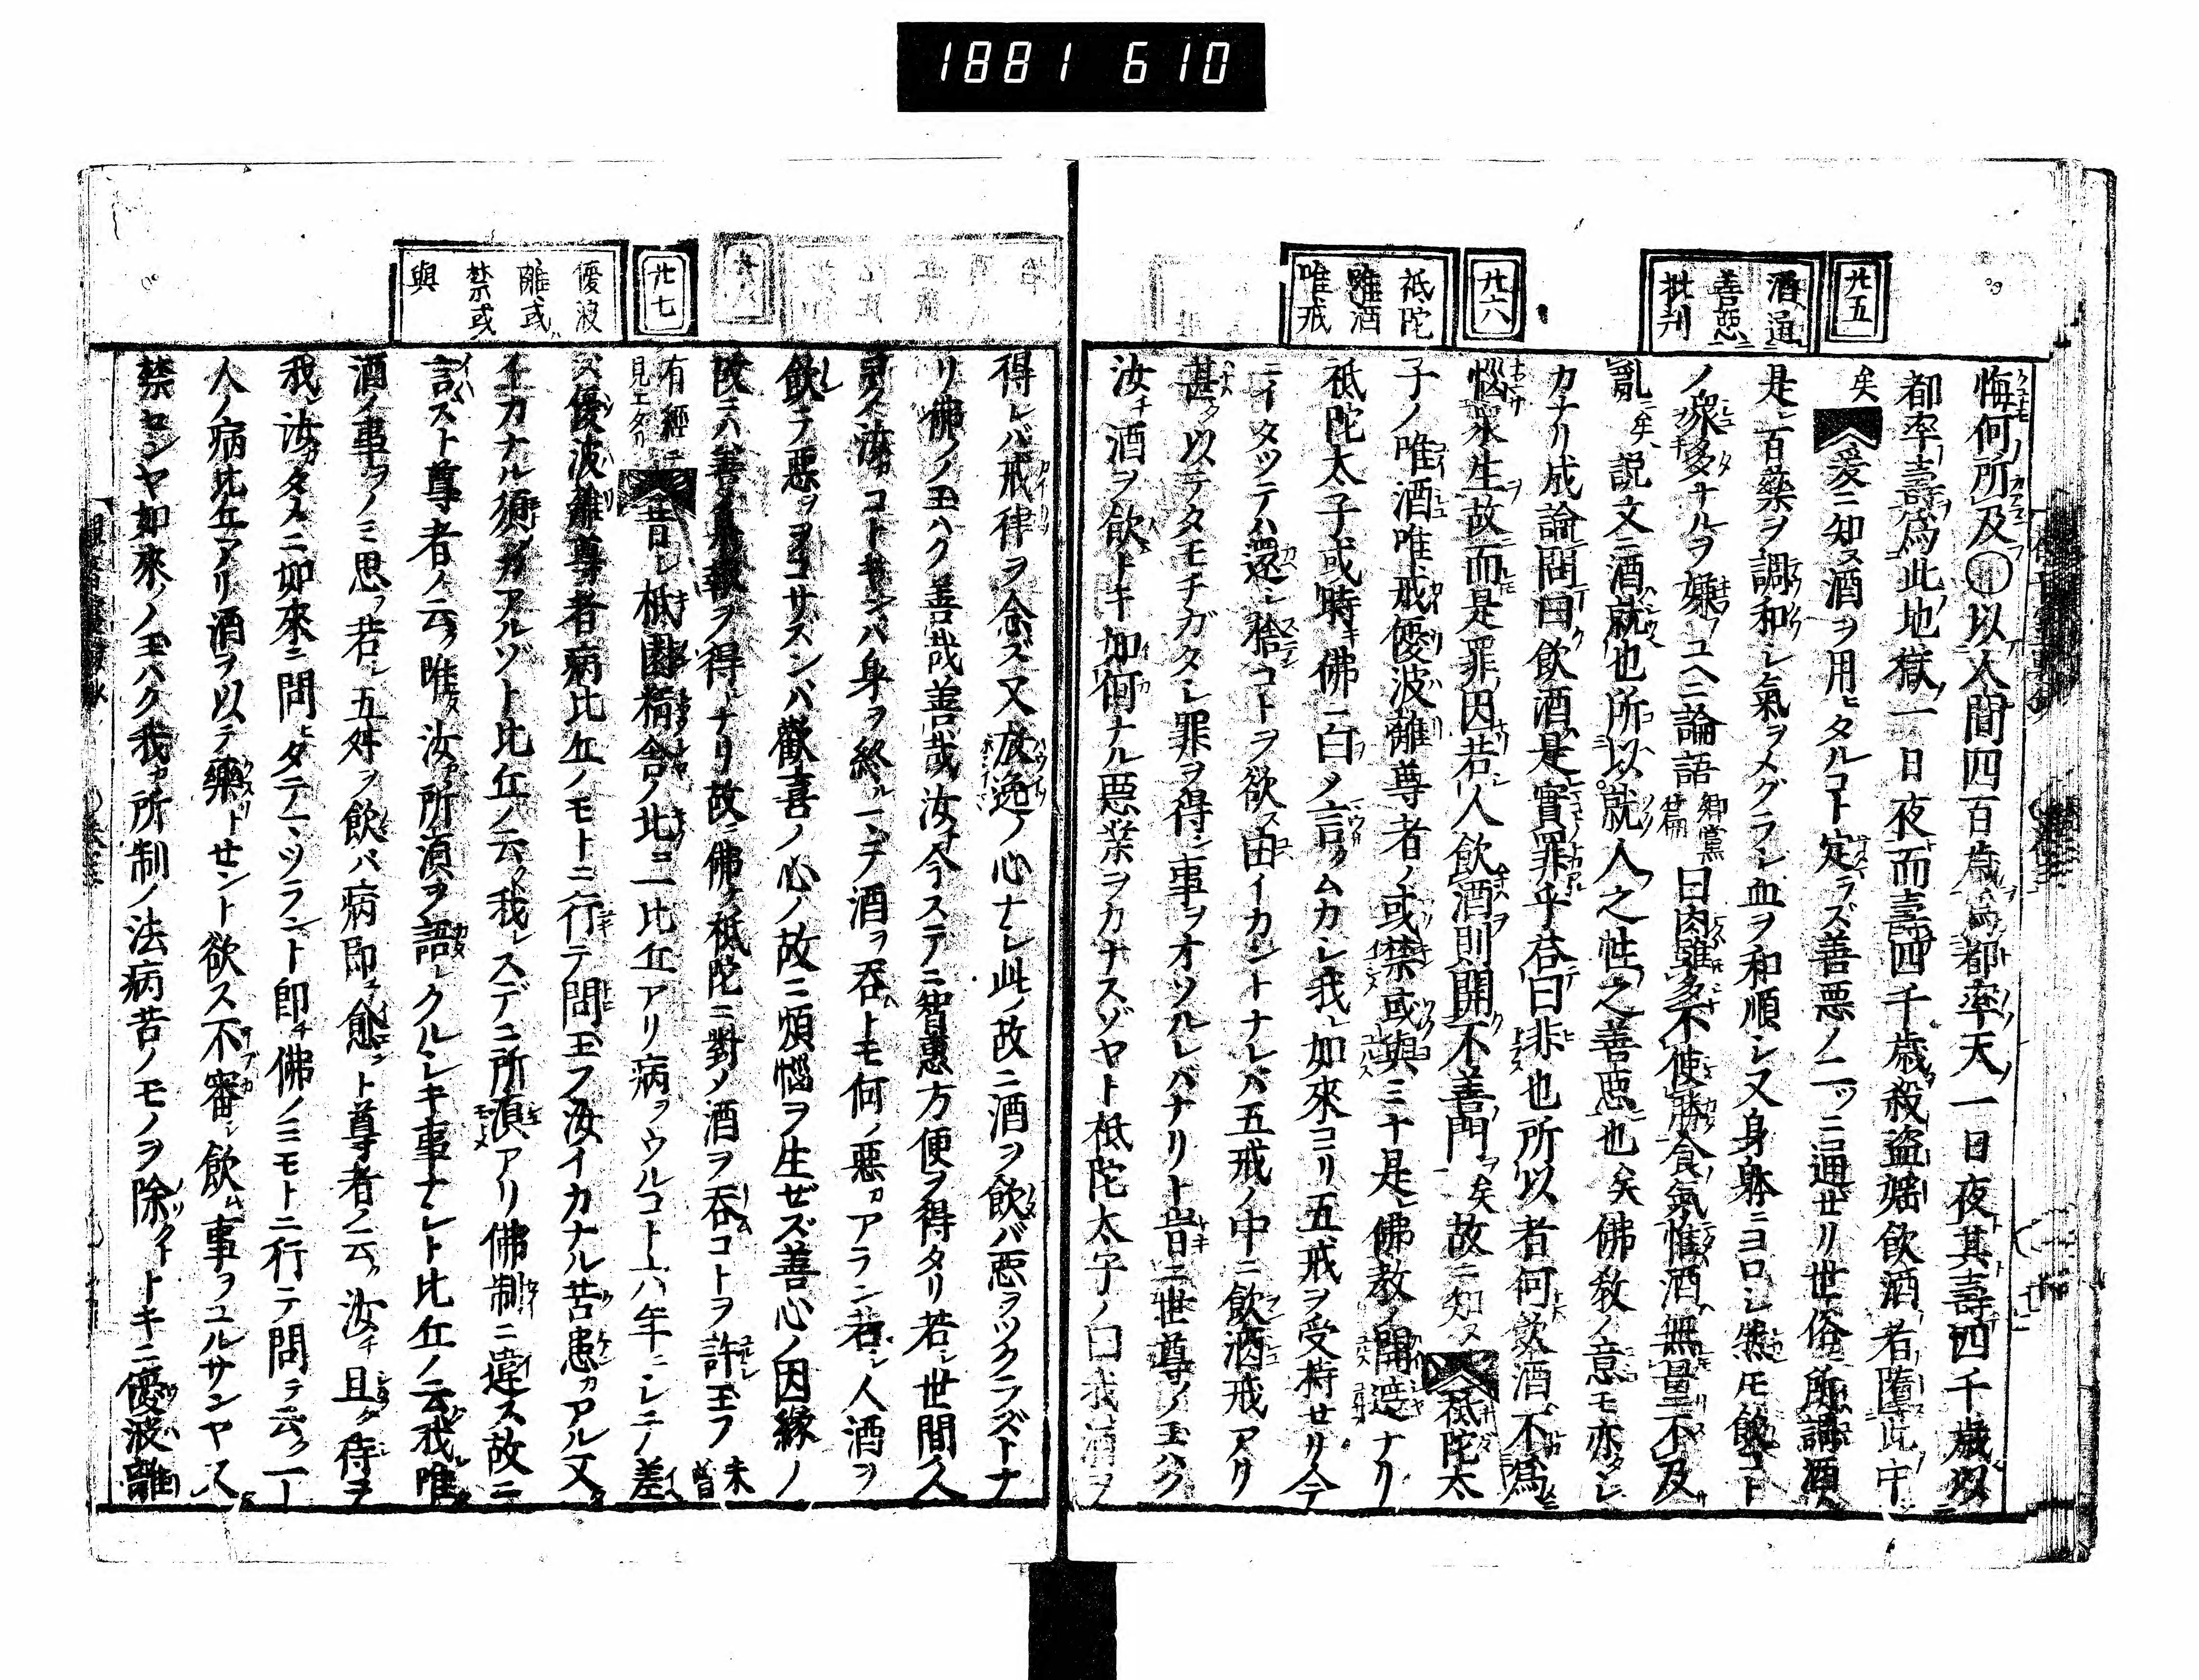 1881 610
廿五
酒通
善惡
批判
廿六
祇陀
唯酒
唯戒
悔何所及○以人間四百歳為都率天一日夜其壽四千歳以
都率壽為此地獄一日夜而壽四千歳殺盗婬飲酒者墮此中
矣 爰ニ知ヌ酒ヲ用ヒタルコト定ラズ善悪ノ二ツニ通セリ世俗ノ所謂酒ハ
是レ百藥ヲ調和シ氣ヲメグラシ血ヲ和順シ又身躰ニヨロシ無モ飲コト
ノ衆多ナルヲ嫌フユヘニ論語郷黨篇曰肉雖多不使勝食氣惟酒無量不及
亂矣説文ニ酒就也所以就人之性之善悪也矣佛教ノ意モ亦タシ
カナリ成論問曰飲酒是實罪乎荅曰非也所以者何飲酒不為
惱衆生故而是罪因若人飲酒則開不善門矣故ニ知ヌ 祗陀太
子ノ唯酒唯戒優波離尊者ノ或禁或與ミナ是レ佛教ノ開遮ナリ
祗陀太子或時キ佛ニ白ノ言クムカシ我レ如來ヨリ五戒ヲ受持せリ今
ニイタツテハ還シ捨コトヲ欲ス由イカントナレバ五戒ノ中ニ飲酒戒アリ
甚タ以テタモチガタシ罪ヲ得ン事ヲオソルレバナリト昔ニ世尊ノ玉ハク
汝チ酒ヲ飲トキ如何ナル悪業ヲカナスゾヤト祗陀太子ノ曰我レ酒ヲ
廿七
優波
離或
禁或
與
得レバ戒律ヲ念ズ又放逸ノ心ナシ此ノ故ニ酒ヲ飲バ悪ヲツクラズトナ
リ佛ノノ玉ハク善哉善哉汝チ今ステニ智慧方便ヲ得タリ若シ世間ノ人
灵ク汝カコトキンバ身ヲ終ルマデ酒ヲ呑トモ何ノ悪カアラン若シ人酒ヲ
飲テ悪ヲヲコサズンバ歡喜ノ心ノ故ニ煩惱ヲ生ぜズ善心ノ因縁ノ
故ニハ善果報ヲ得トナリ故ニ佛ケ祗陀ニ對ノ酒ヲ呑コトヲ許シ玉フ未曾
有經ニ見エタリ 昔シ祗園精舎ノ北ニ一比丘アリ病ヲウルコト六年ニレテ差
ズ優波離尊者病比丘ノモトニ行テ問玉フ汝イカナル苦患カアル又
イカナル須ヲカアルゾト比丘ノ云ク我レスデニ所湏アリ佛制ニ違ス故ニ
言ズト尊者ノ云ク唯汝カ所湏ヲ語レクルシキ事ナシト比丘ノ云我レ唯
酒ノ事ヲノミ思フ若シ五舛ヲ飲バ病即愈ント尊者ノ云ク汝チ且ク待ヲ
我レ汝カタメニ如來ニ問ヒタテマツラント即チ佛ノミモトニ行テ問テ云ク一
人ノ病比丘アリ酒ヲ以テ藥トせント欲ス不審シ飲ム事ヲユルサンヤ又
禁センヤ如來ノノ玉ハク我カ所制ノ法病苦ノモノヲ除クトキニ優波離